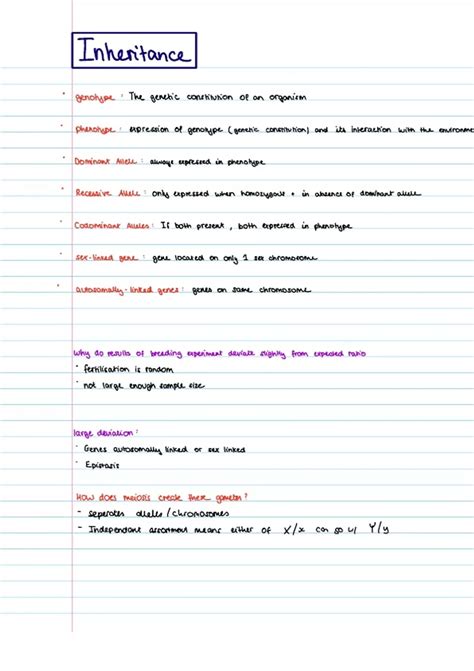 Inheritance
• genotype : The genetic constitution of an organism
• phenotype : expression of genotype (genetic constitution) and its interaction with the environme
• Dominant Allele : always expressed in phenotype
• Recessive Allele : only expressed when homozygous + in absence of dominant allele
• Codominant Alleles : If both present , both expressed in phenotype
• sex-linked gene : gene located on only 1 sex chromosome
• autosomally-linked genes : genes on same chromosome
Why do results of breeding experiment deviate slightly from expected ratio
• fertilisation is random
• not large enough sample size
large deviation :
• Genes autosomally linked or sex linked
• Epistasis
How does meiosis create these gametes ?
- seperates alleles / chromosomes
- Independant assortment means either of X/x can go w/ Y/y